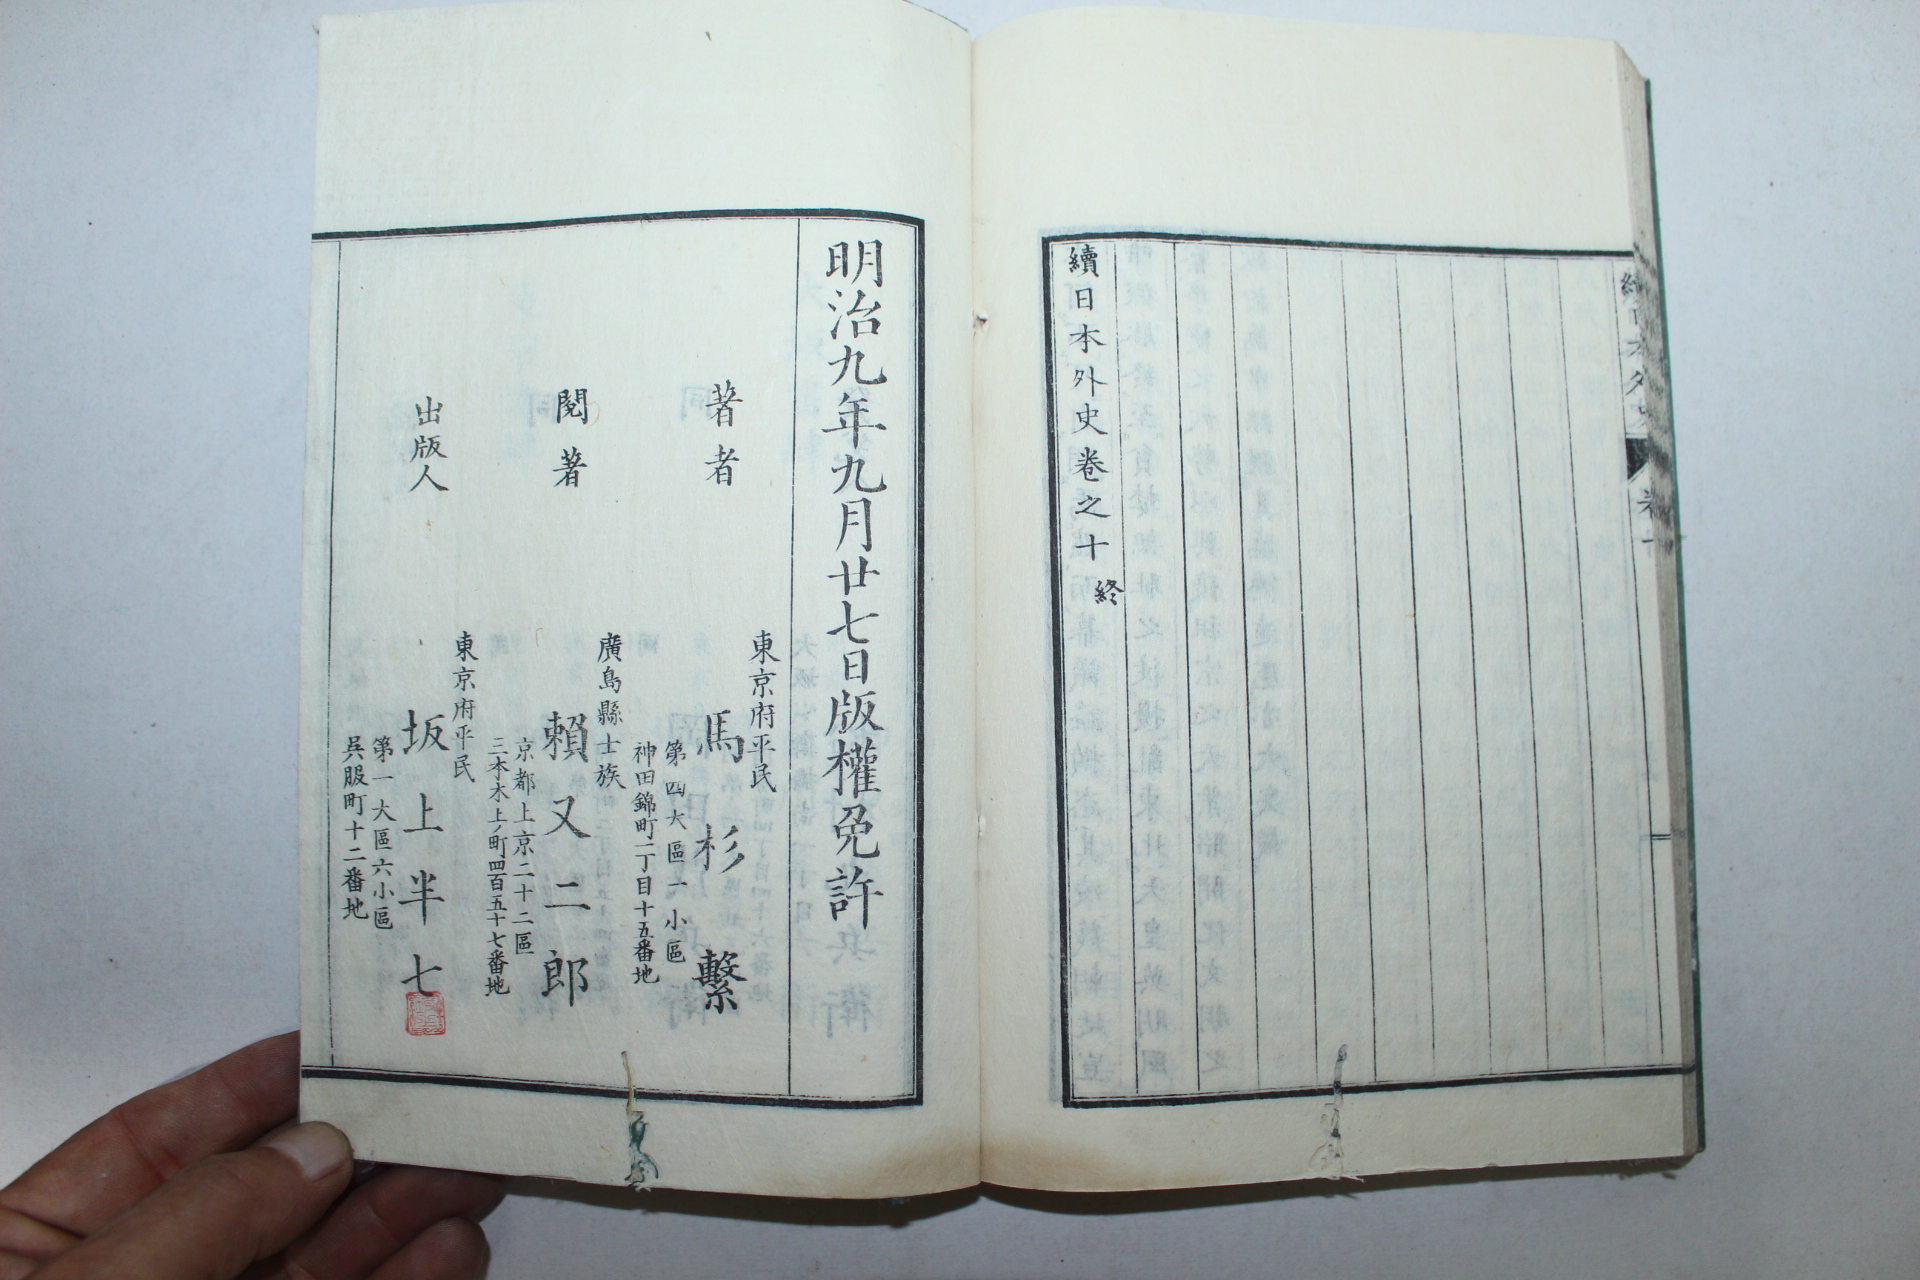 續日本外史卷之十 終
明治九年九月廿七日版權免許
著者
東京府平民
馬杉繫
第四大區一小區
神田錦町二丁目十五番地
閱著
廣島縣士族
賴又二郎
京都上京二十二區
三本木上ノ町四百五十七番地
出版人
東京府平民
坂上半七
第一大區六小區
吳服町十二番地